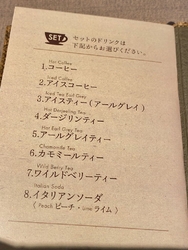 SET
セットのドリンクは
下記からお選びください。
Hot Coffee
1.コーヒー
Iced Coffee
2.アイスコーヒー
Iced Tea Earl Grey
3.アイスティー(アールグレイ)
Hot Darjeeling Tea
4.ダージリンティー
Hot Earl Grey Tea
5.アールグレイティー
Chamomile Tea
6.カモミールティー
Wild Berry Tea
7.ワイルドベリーティー
Italian Soda
8.イタリアンソーダ
(Peach ピーチ・Lime ライム)